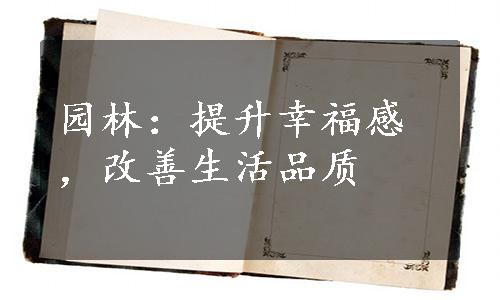 园林：提升幸福感
，改善生活品质